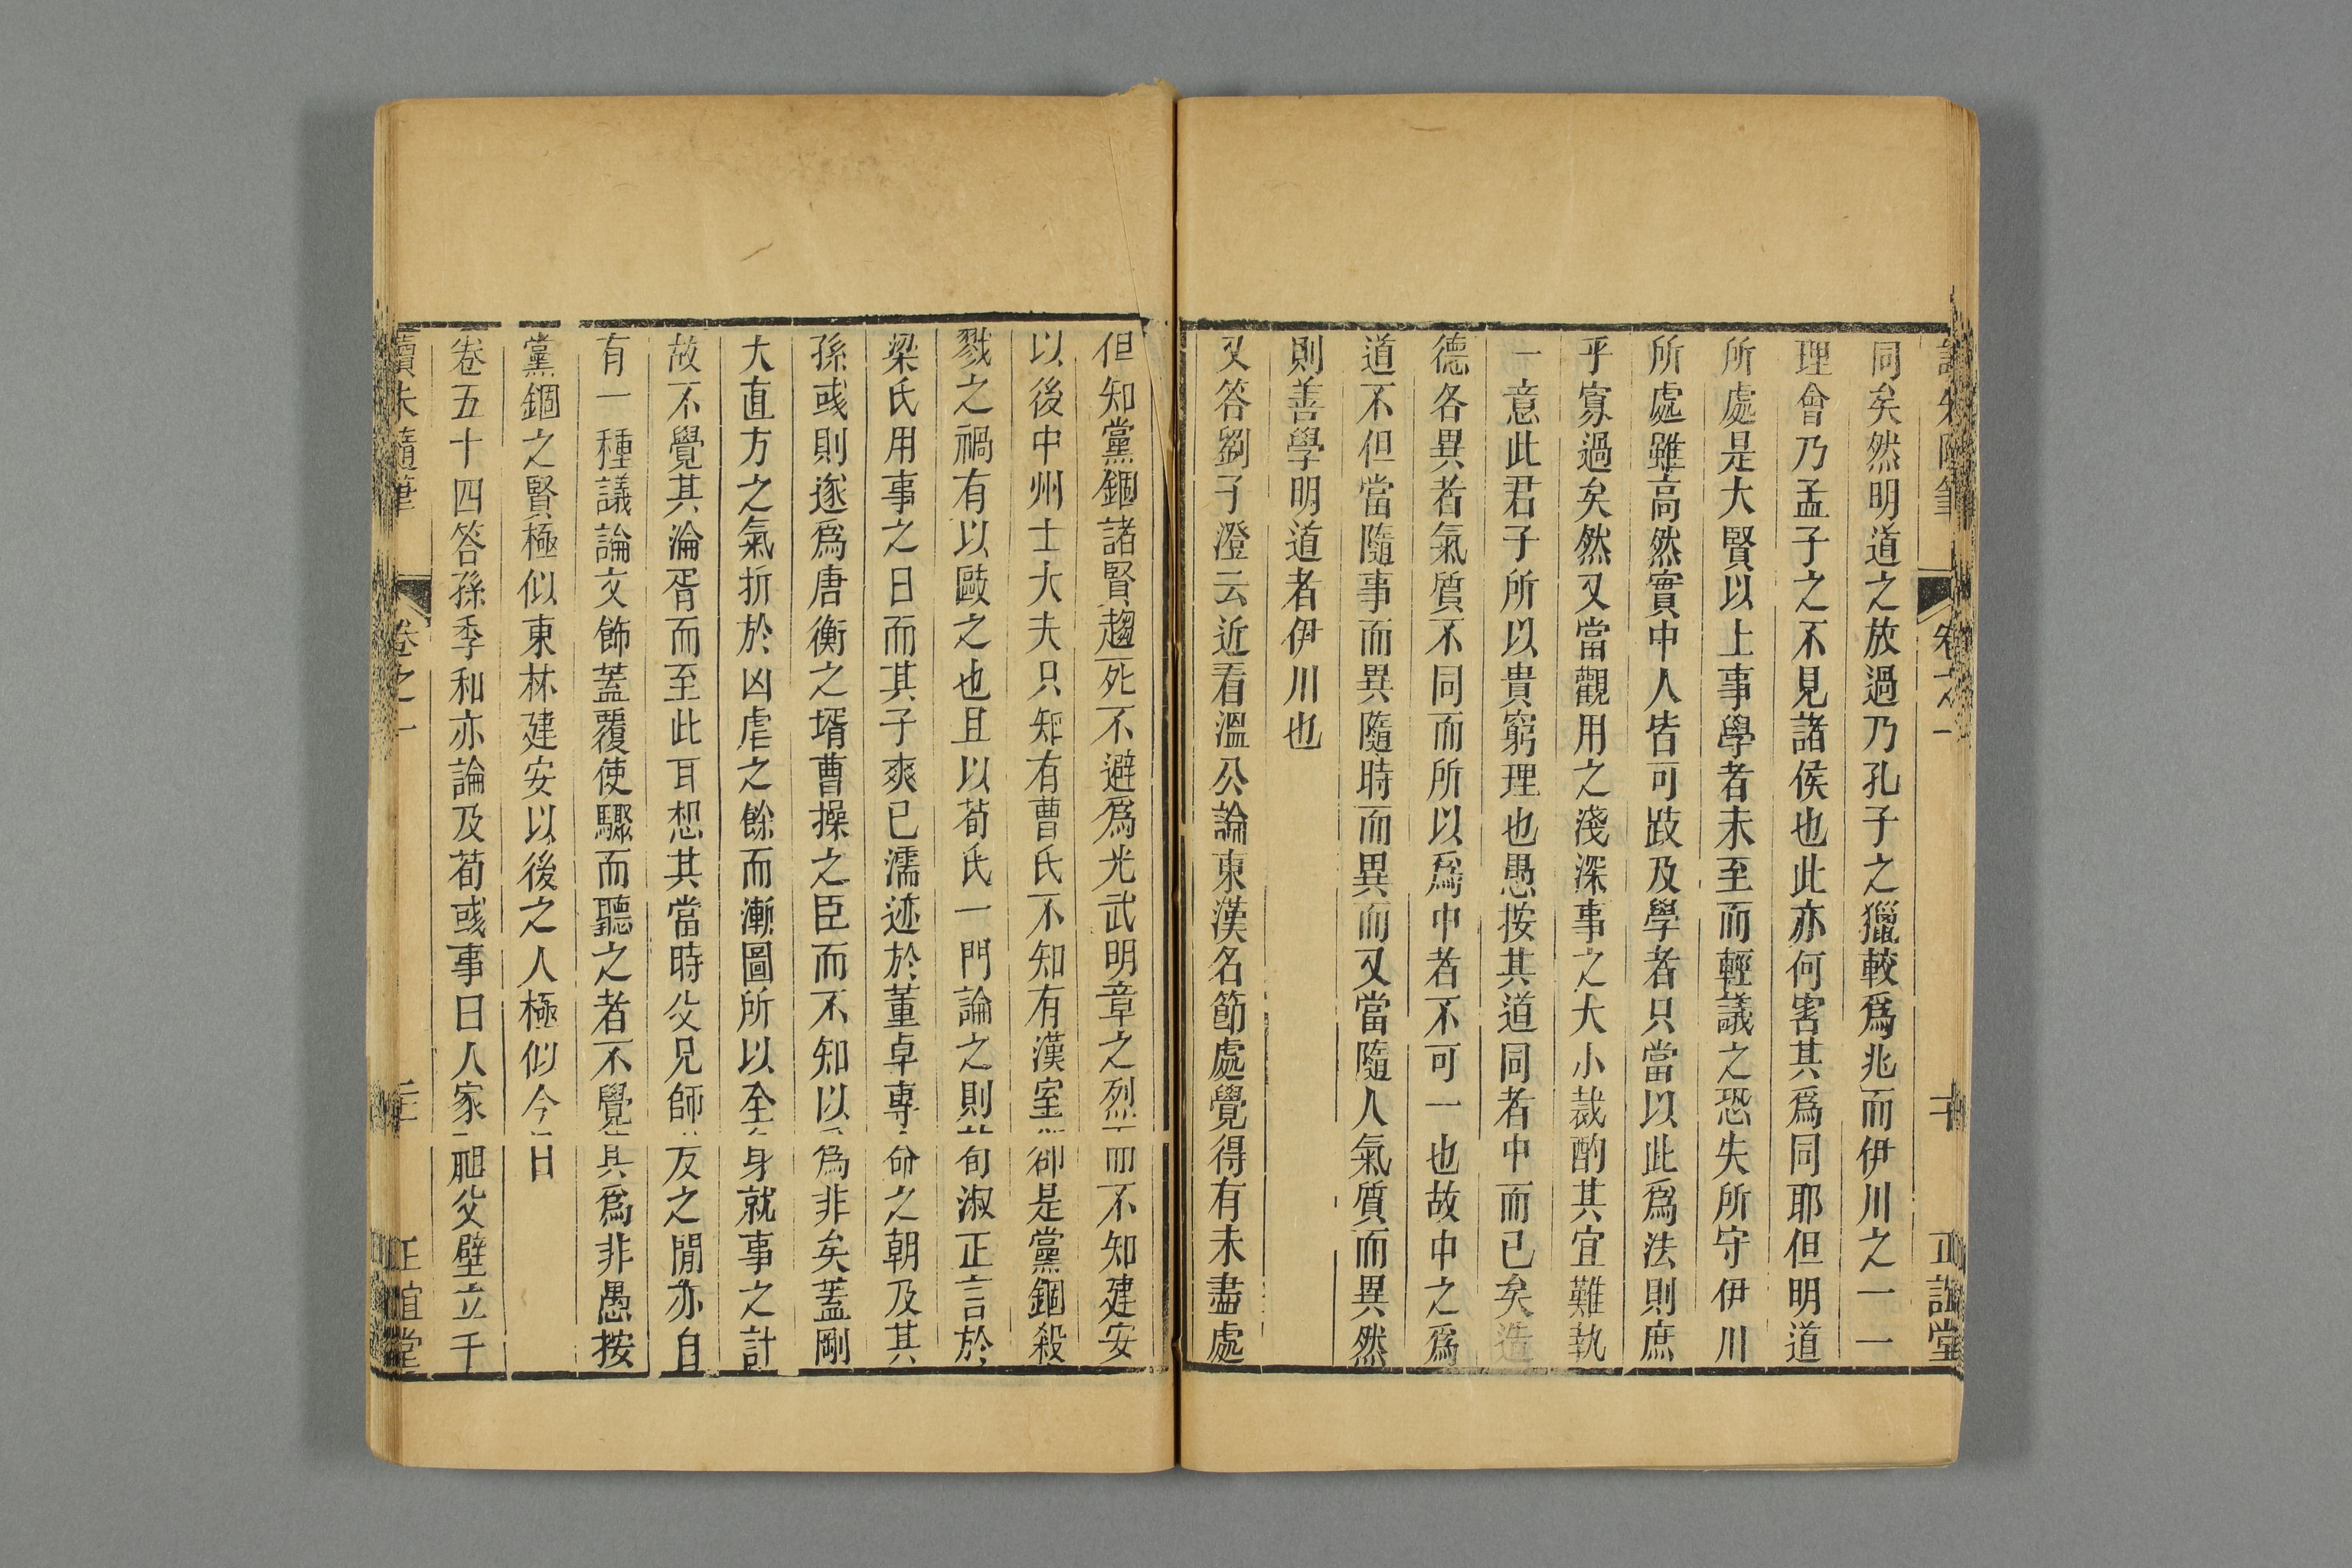 同矣然明道之放過乃孔子之獵較爲兆而伊川之一一
理會乃孟子之不見諸侯也此亦何害其爲同耶但明道
所處是大賢以上事學者未至而輕議之恐失所守伊川
所處雖高然實中人皆可跂及學者只當以此爲法則庶
乎寡過矣然又當觀用之淺深事之大小裁酌其宜難執
一意此君子所以貴窮理也愚按其道同者中而已矣造
德各異者氣質不同而所以爲中者不可一也故中之爲
道不但當隨事而異隨時而異而又當隨人氣質而異然
則善學明道者伊川也
又答劉子澄云近看溫公論東漢名節處覺得有未盡處
但知黨錮諸賢趨死不避爲光武明章之烈而不知建安
以後中州士大夫只知有曹氏不知有漢室卻是黨錮殺
戮之禍有以敺之也且以荀氏一門論之則荀淑正言於
梁氏用事之日而其子爽已濡迹於董卓專命之朝及其
孫彧則遂爲唐衡之壻曹操之臣而不知以爲非矣蓋剛
大直方之氣折於凶虐之餘而漸圖所以全身就事之計
故不覺其淪胥而至此耳想其當時父兄師友之閒亦自
有一種議論文飾蓋覆使驟而聽之者不覺其爲非愚按
黨錮之賢極似東林建安以後之人極似今日
卷五十四答孫季和亦論及荀彧事曰人家祖父壁立千
讀朱隨筆
卷之一
正誼堂